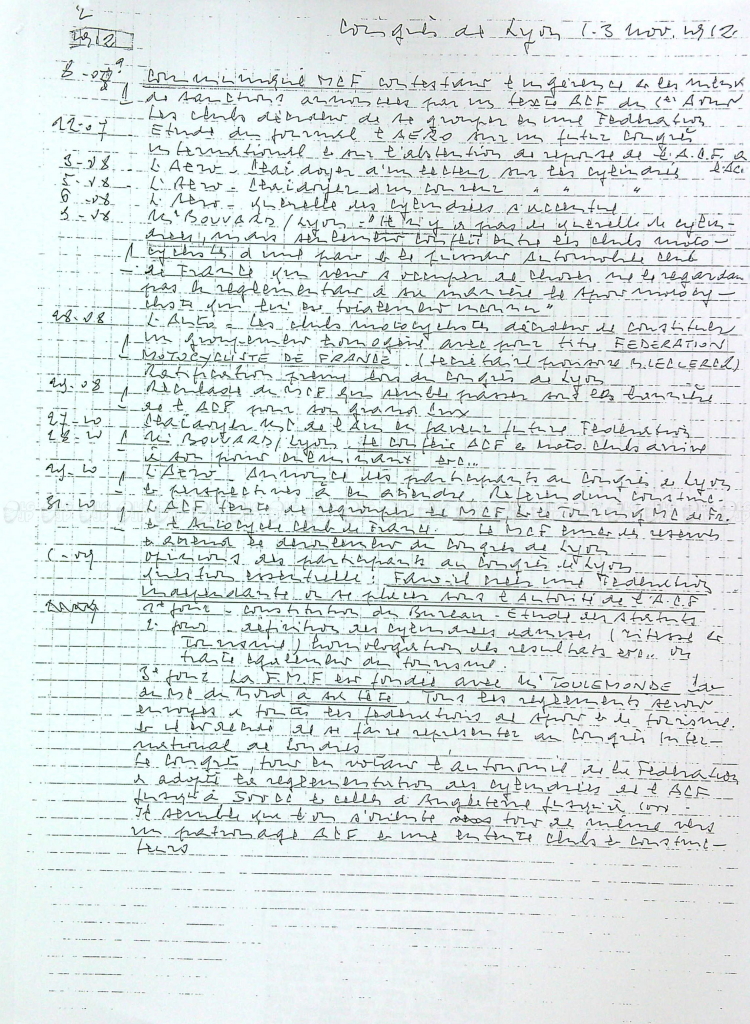 2
1912
Congrès de Lyon 1.3 nov. 1912
Communiqué MCF contestant l'ingérence et les
de sanctions annoncées par un texte ACF du 1er
Les clubs décident de se grouper en une Fédération
Etude du journal l'AERO sur un futur Congrès
international et sur l'abstention de réponse de l'A.C.F. a
3-08 L'Aero - Plaidoyer d'un lecteur sur les cylindrées
5-08 L'Aero - Plaidoyer d'un " " "
6-08 L'Aero - querelle des cylindrées s'accentue
9-08 Mr BOUVARD/Lyon - "Il n'y a pas de querelle de cylin-
drées, mais seulement conflit entre les clubs moto-
cyclistes d'une part et le puissant Automobile Club
de France qui veut s'occuper de choses ne le regardant
pas et réglementer à sa manière le sport motocy-
cliste qui lui est totalement inconnu"
28-08 L'Auto - Les clubs motocyclistes décident de constituer
un groupement homogène avec pour titre FEDERATION
MOTOCYCLISTE DE FRANCE. (secrétaire provisoire M. LECLERCQ)
Ratification prévue lors du Congrès de Lyon
29-08 Reculade du MCF qui semble passer sous la bannière
de l'ACF pour son grand prix
27-10 Plaidoyer MC de l'Ain en faveur future Fédération
28-10 Mr BOUVARD/Lyon. Le conflit ACF et moto-clubs arrive
à son point culminant etc..
29-10 L'Aero - Annonce des participants au Congrès de Lyon
et perspectives à en attendre. Referendum construc.
31-10 L'ACF tente de regrouper le MCF et le Touring MC de Fr.
et l'Autocycle Club de France. Le MCF émet des réserves
et attend le déroulement du Congrès de Lyon
Opinions des participants au Congrès de Lyon
Question essentielle : Faut-il créer une Fédération
indépendante ou se placer sous l'autorité de l'A.C.F
1er jour - constitution du Bureau - Etude des statuts
2e jour - définition des cylindrées admises (vitesse et
tourisme) homologation des résultats etc.. On
traite également du tourisme.
3e jour La F.M.F est fondée avec Mr TOULEMONDE
du MC du Nord à sa tête. Tous les règlements seront
envoyés à toutes les fédérations de sport et de tourisme.
et il est décidé de se faire représenter au Congrès Inter-
national de Londres
Le Congrès, tout en votant l'autonomie de la Fédération
a adopté la réglementation des cylindrées de l'ACF
jusqu'à 500cc et celles d'Angleterre jusqu'à
Il semble que l'on s'oriente tout de même vers
un patronage ACF et une entente clubs et construc-
teurs